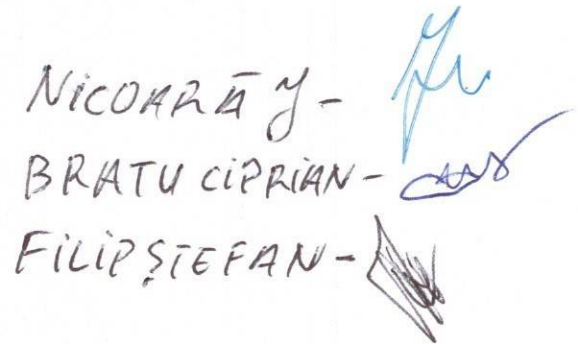 NICOARĂ J -
BRATU CIPRIAN -
FILIP ȘTEFAN -